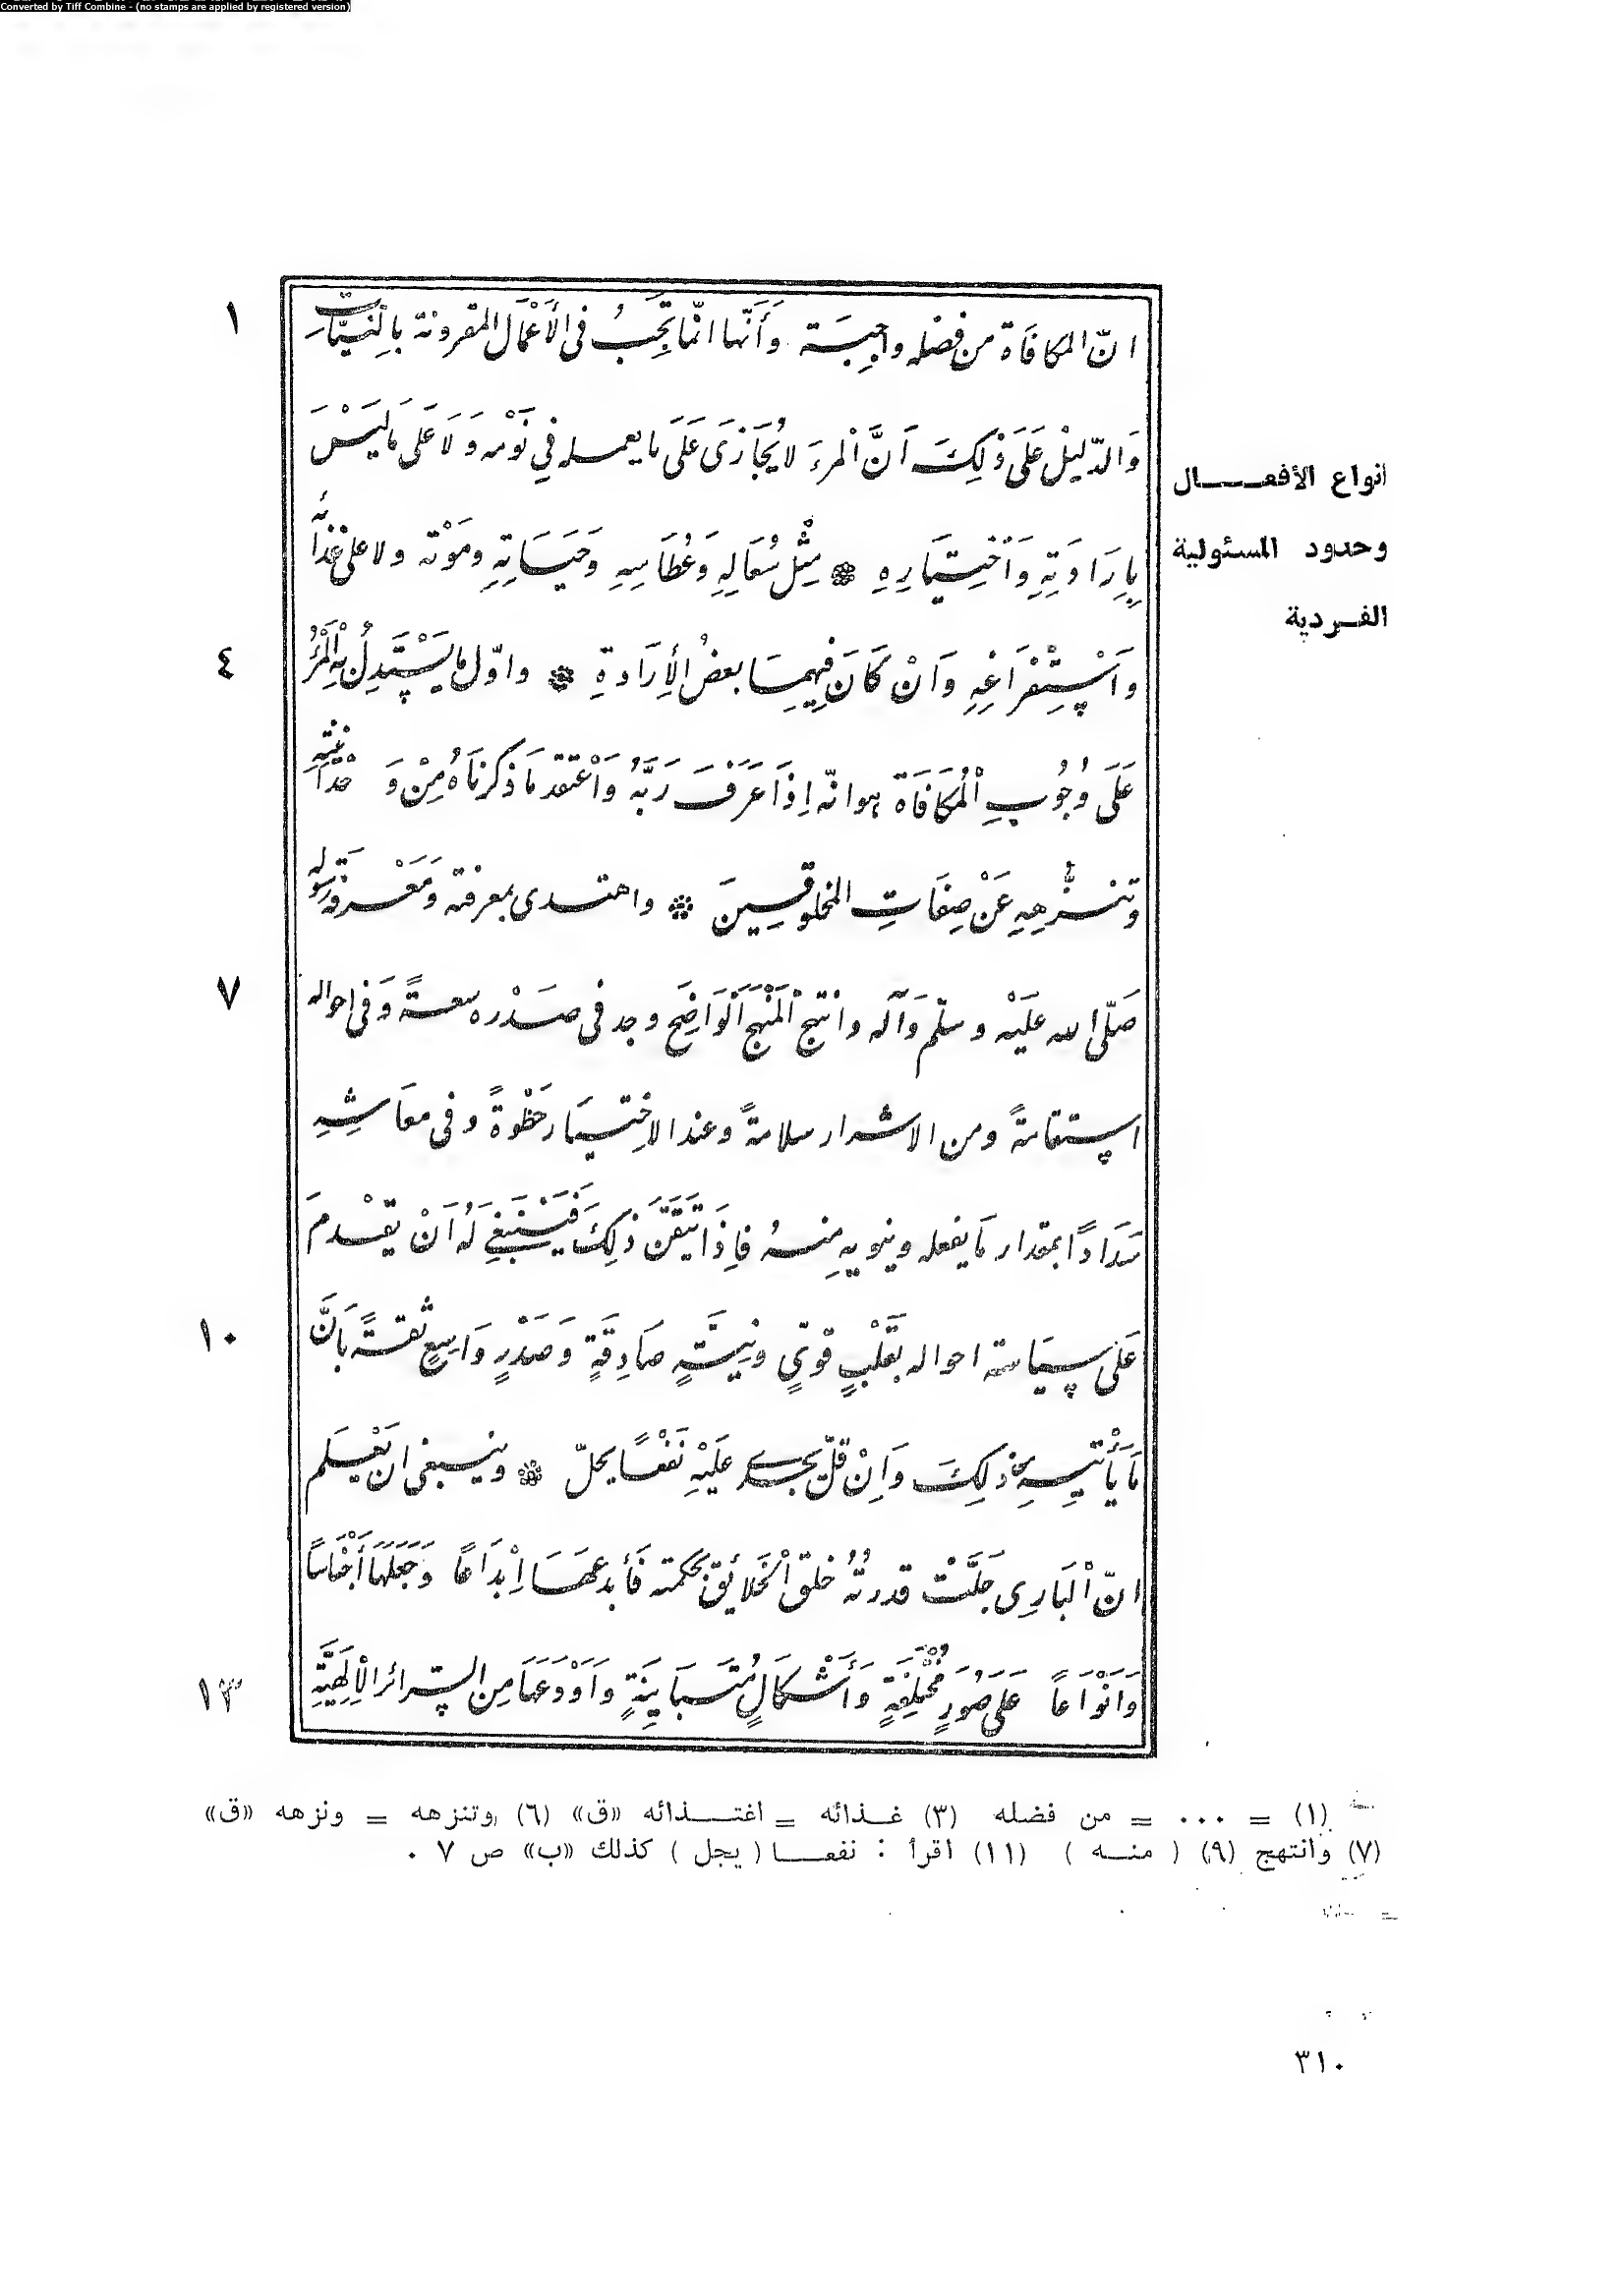 Converted by Tiff Combine - (no stamps are applied by registered version)
١
انّ المكافَاة من فضْله واجِبَة وَأَنّها انمّا تجَبُ فى الأَعْمَال المقرونة بالنِيَّات
وَالدّليْل عَلَى ذٰلِكَ اَنَّ اْلمرءَ لا يُجَازَى عَلَى ما يعمله فِي نَوْمه وَلَا عَلَى مَا لَيَسْ
انواع الأفعال
وحدود المسئولية
الفردية
بِاِرَادَتِهِ وَاَخْتِيَارِهِ مِثْل سُعَالِهِ وَعُطَاسِهِ وَحَيَاتِهِ وَمَوْته ولا على غذَائه
٤
وَاَسْتِفْرَاغِهِ وَانْ كَانَ فِيهِمَا بعضُ الأِرَادةِ واوّل ما يَسْتَدِلُ بِهِ اْلمَرْءُ
عَلَى وُجُوبِ اْلمُكَافَاة هوانّه اِذَا عَرَفَ رَبَّهُ وَاعْتقد مَا ذكرنَاهُ مِنْ وَحْدَانيّتِهِ
وتنزُّهِهِ عَنْ صِفَاتِ المخلوقينَ واهتدى بمعرفته وَمَعْرفة رَسُوله
٧
صَلّى الله عَلَيْه وسلّم وَآله وانتهج اْلمَنْهَج اَلْوَاضِحَ وجد فى صَدْره سعةً وَفى احواله
استقامةً ومن الاشرار سلامةً وعند الاخِتيَار حَظْوةً وفى معَاشِهِ
سَدَادًا بمقدار مَا يفعله وينويه مِنهُ فاِذَا تَيَقَّنَ ذلِكَ فَيَنْبَغِى لَهُ اَنْ يقْدمَ
١٠
عَلَى سِيَاسة احواله بقَلْبٍ قوىٍّ ونِيَّةٍ صَادِقَةٍ وَصَدْرٍ وَاسِعٍ ثقةً بَانَّ
مَا يَأْتيهِ مِن ذلِكَ وَاِنْ قلّ يجدى عَلَيْهِ نَفْعًا يحلّ وينبغى ان يَعْلَم
انّ اْلبَارِى جَلَّتْ قدرتُهُ خلقَ اْلخَلائِق بحكمته فَأبدعهَا اِبْدَاعًا وَجَعَلَهَا أَجْنَاسًا
١٣
وَاَنْوَاعًا عَلَى صُوَرٍ مُخْتَلِفَةٍ وَأَشْكَالٍ مُتَبَايِنَةٍ وَاَوْدَعَهَا مِن السّرائر الأِلَهِيَّةِ
(١) = ٠٠٠ = من فضله (٣) غذائه = اغتذائه «ق» (٦) وتنزهه = ونزهه «ق»
(٧) وانتهج (٩) ( منه ) (١١) اقرأ : نفعا ( يجل ) كذلك «ب» ص ٧ ٠
٣١٠